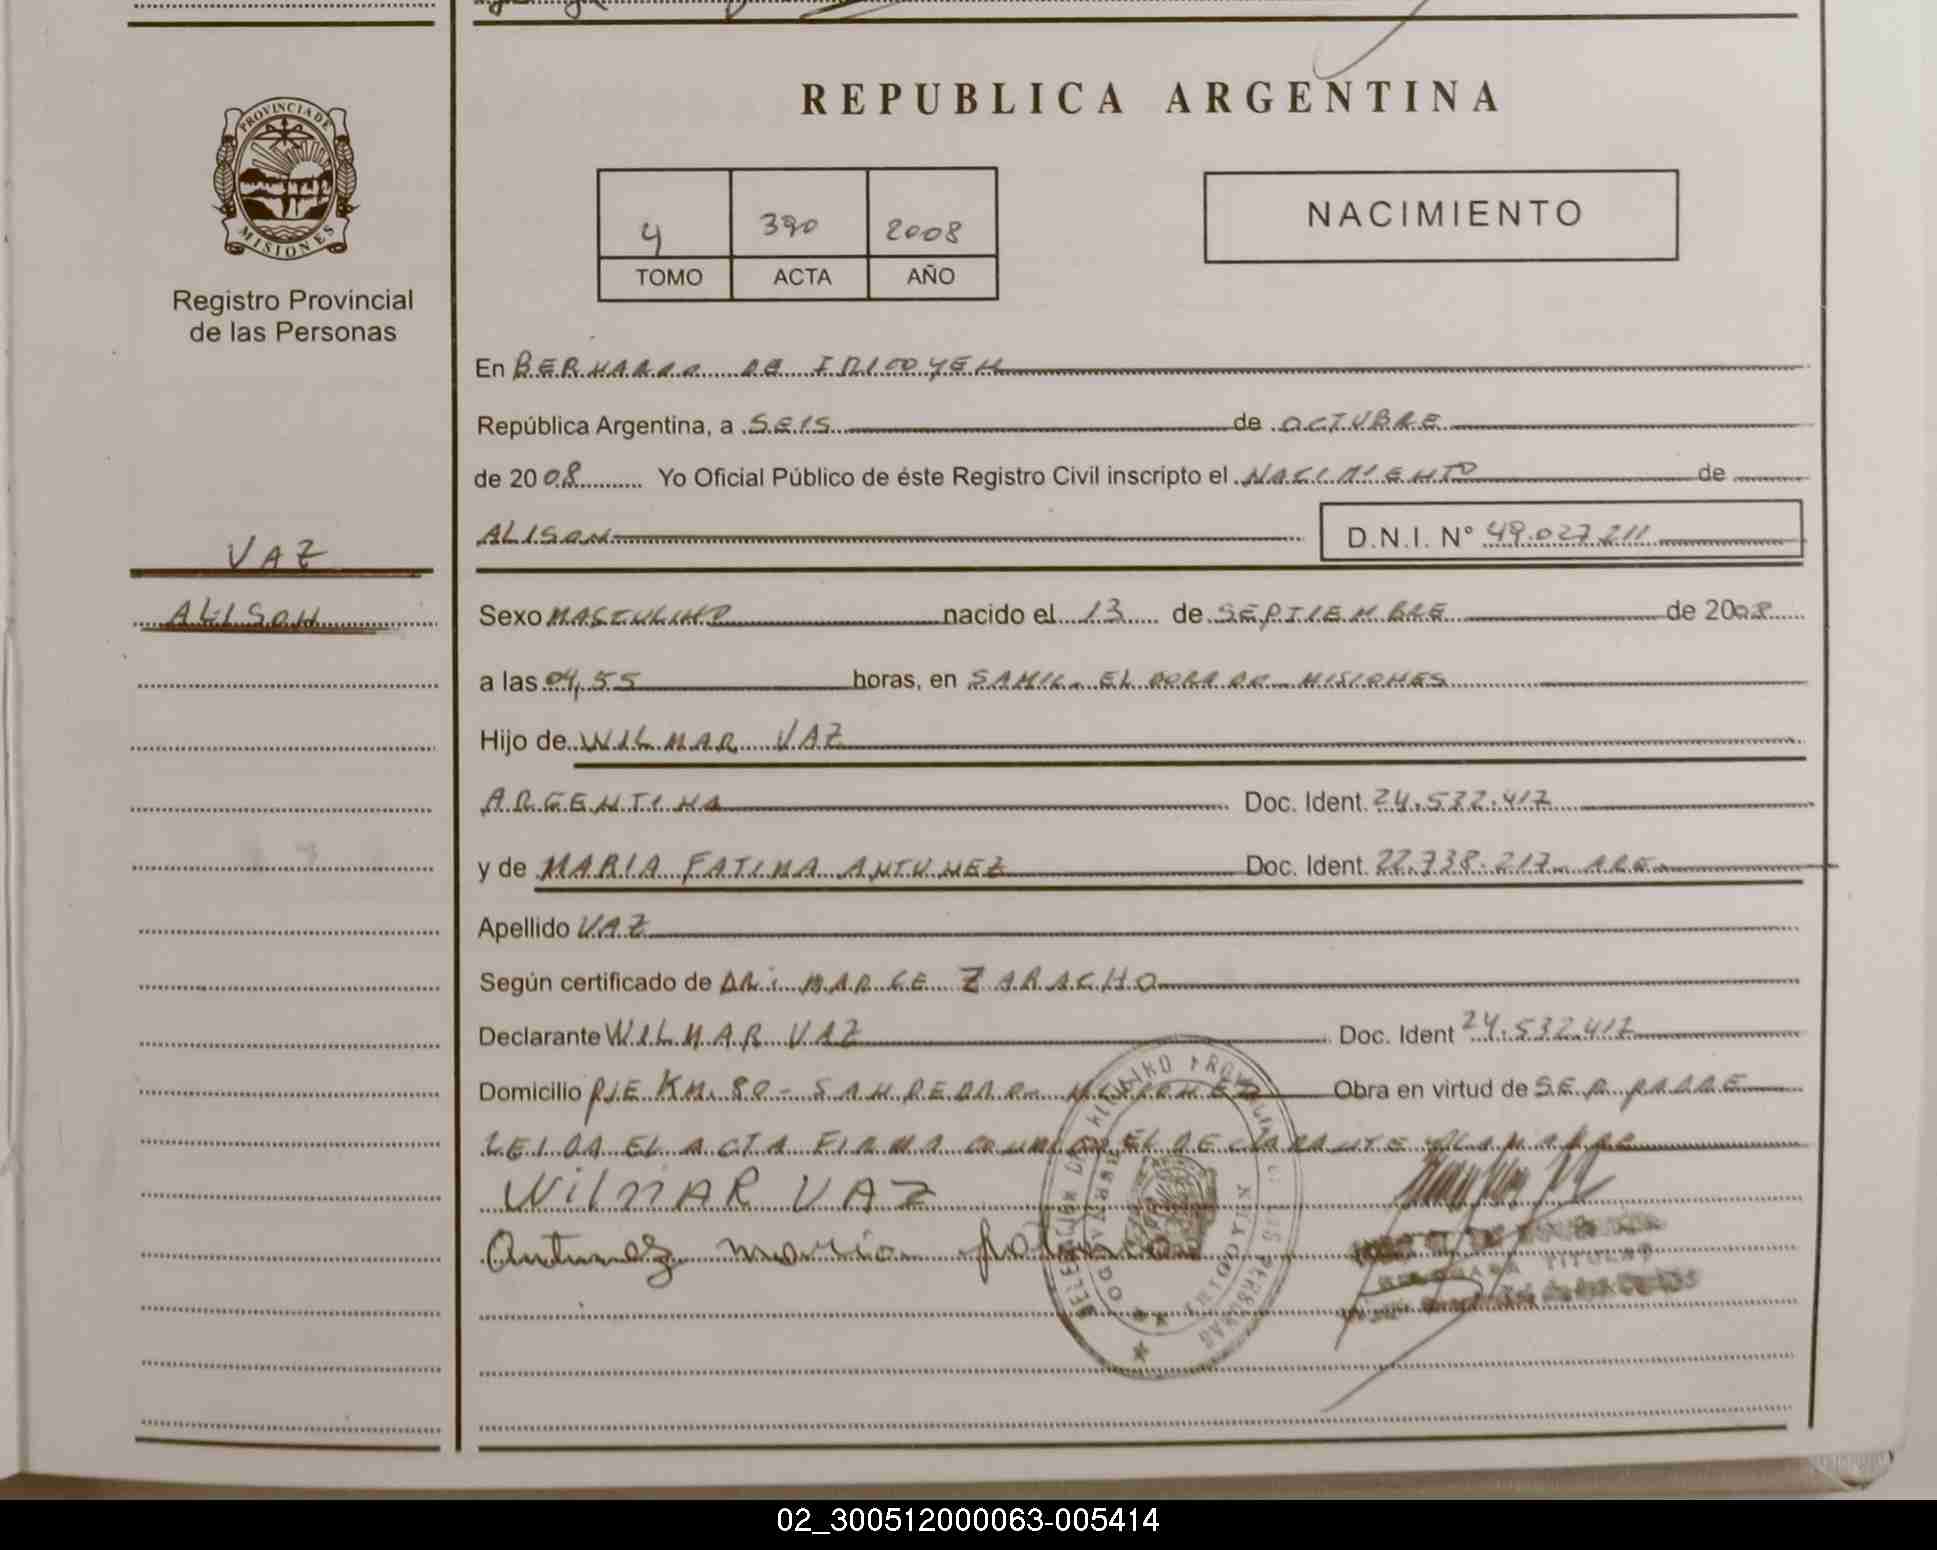 PROVINCIA DE
MISIONES
Registro Provincial
de las Personas
VAZ
ALISON
REPUBLICA ARGENTINA
4 390 2008
TOMO ACTA AÑO
NACIMIENTO
En BERNARDO DE IRIGOYEN
República Argentina, a SEIS de OCTUBRE
de 2008 Yo Oficial Público de éste Registro Civil inscripto el NACIMIENTO de
ALISON D.N.I. N° 49.027.211
Sexo MASCULINO nacido el 13 de SEPTIEMBRE de 2008
a las 04,55 horas, en SAMIC - ELDORADO - MISIONES
Hijo de WILMAR VAZ
ARGENTINA Doc. Ident. 24.532.417
y de MARIA FATIMA ANTUNEZ Doc. Ident. 22.738.217 - ARG
Apellido VAZ
Según certificado de DR. ZARACHO
Declarante WILMAR VAZ Doc. Ident 24.532.417
Domicilio PJE KM. 80 - SAN PEDRO - MISIONES Obra en virtud de SER PADRE
LEIDA EL ACTA FIRMA CONMIGO EL DECLARANTE Y LA MADRE
WILMAR VAZ
Antunez maria fatima
TITULAR
02_300512000063-005414